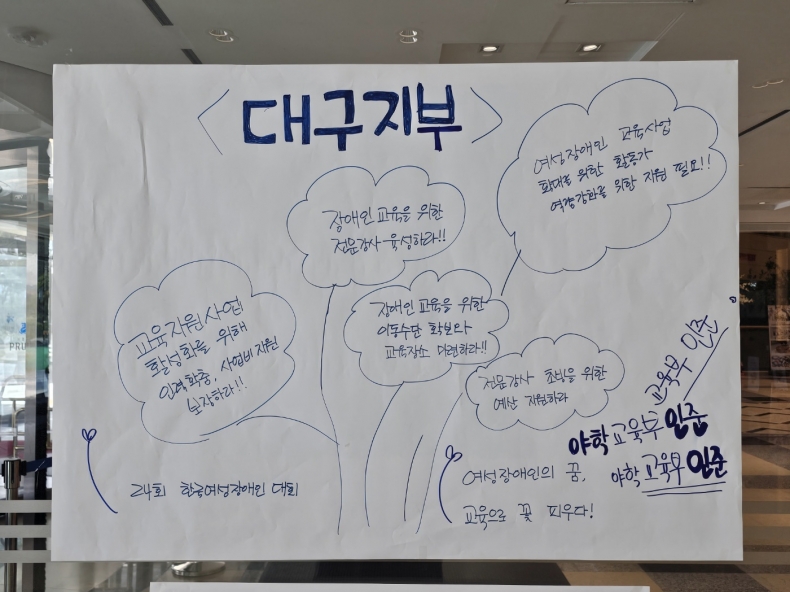 <대구지부>
여성장애인 교육사업
확대를 위한 활동가
역량강화를 위한 지원 필요!!
장애인 교육을 위한
전문강사 육성하라!!
교육지원사업
활성화를 위해
인력확충, 사업비 지원
보장하라!!
장애인 교육을 위한
이동수단 확보와
교육장소 마련하라!!
전문강사 초빙을 위한
예산 지원하라
교육부 인준
야학 교육부 인준
야학 교육부 인준
24회 한국여성장애인 대회
여성장애인의 꿈,
교육으로 꽃 피우다!
PRU